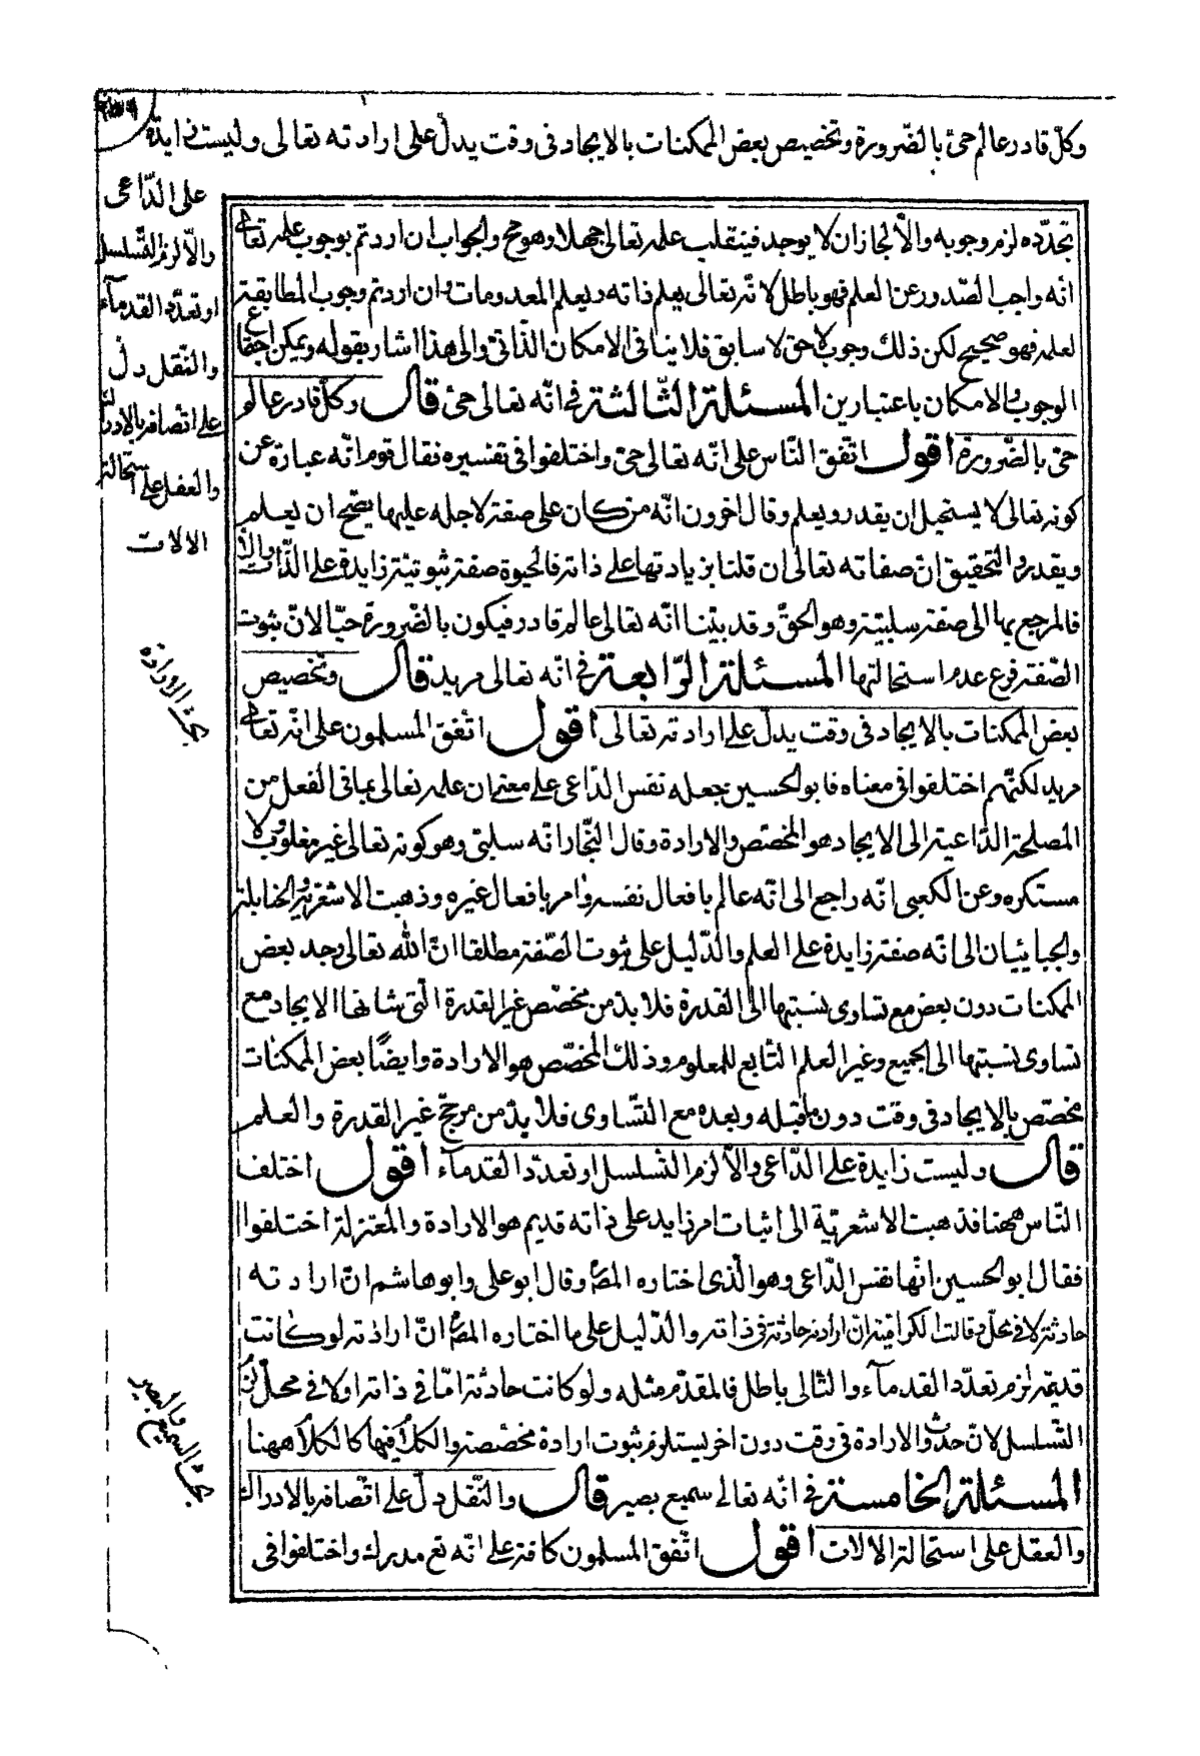 وكلّ قادر عالم حىّ بالضّرورة وتخصيص بعض الممكنات بالايجاد فى وقت يدلّ على ارادته تعالى وليست زايدة
على الدّاعى
والّا لزم التّسلسل
او تعدّد القدمآء
والنّقل دلّ
على اتّصافه بالادراك
والعقل على استحالة
الالات
تجدّده لزم وجوبه والّا لجاز ان لا يوجد فينقلب علمه تعالى جهلا وهو مح والجواب ان اردتم بوجوب علمه تعالى
انّه واجب الصّدور عن العلم فهو باطل لانّه تعالى يعلم ذاته ويعلم المعدومات وان اردتم وجوب المطابقة
لعلمه فهو صحيح لكن ذلك وجوب لاحق لا سابق فلا ينافى الامكان الذّاتى والى هذا اشار بقوله ويمكن اجتماع
الوجوب والامكان باعتبارين المسئلة الثّالثة فى انّه تعالى حىّ قال وكلّ قادر عالم
حىّ بالضّرورة اقول اتّفق النّاس على انّه تعالى حىّ واختلفوا فى تفسيره فقال قوم انّه عبارة عن
كونه تعالى لا يستحيل ان يقدر ويعلم وقال اخرون انّه من كان على صفة لاجله عليها يصّح ان يعلم
ويقدر والتحقيق انّ صفاته تعالى ان قلنا بزيادتها على ذاته فالحيوة صفة ثبوتيّة زايدة على الذّات والّا
فالمرجع بها الى صفة سلبيّة وهو الحقّ وقد بيّنا انّه تعالى عالم قادر فيكون بالضّرورة حيّا لانّ ثبوت
الصّفة فرع عدم استحالتها المسئلة الرّابعة فى انّه تعالى مريد قال وتخصيص
بعض الممكنات بالايجاد فى وقت يدلّ على ارادته تعالى اقول اتّفق المسلمون على انّه تعالى
مريد لكنّهم اختلفوا فى معناه فابو الحسين جعله نفس الدّاعى على معنى ان علمه تعالى بما فى الفعل من
المصلحة الدّاعية الى الايجاد هو المخصّص والارادة وقال النّجّار انّه سلبىّ وهو كونه تعالى غير مغلوب ولا
مستكره وعن الكعبى انّه راجع الى انّه عالم بافعال نفسه وامر بافعال غيره وذهبت الاشعريّة والحنابلة
والجبائيان الى انّه صفة زايدة على العلم والدّليل على ثبوت الصّفة مطلقا انّ الله تعالى وجد بعض
الممكنات دون بعض مع تساوى نسبتها الى القدرة فلا بدّ من مخصّص غير القدرة الّتى شانها الايجاد مع
تساوى نسبتها الى الجميع وغير العلم التّابع للمعلوم وذلك المخصّص هو الارادة وايضًا بعض الممكنات
مخصّص بالايجاد فى وقت دون ما قبله وبعده مع التّساوى فلا بدّ من مرجّح غير القدرة والعلم
قال وليست زايدة على الدّاعى والّا لزم التّسلسل او تعدّد القدمآء اقول اختلف
النّاس ههنا فذهبت الاشعريّة الى اثبات امر زايد على ذاته قديم هو الارادة والمعتزلة اختلفوا
فقال ابو الحسين انّها نفس الدّاعى وهو الّذى اختاره المص وقال ابو على وابو هاشم انّ ارادته
حادثة لا فى محلّ وقالت الكراميّة انّ ارادته حادثة فى ذاته والدّليل على ما اختاره المص انّ ارادته لو كانت
قديمة لزم تعدّد القدمآء والتّالى باطل فالمقدّم مثله ولو كانت حادثة امّا فى ذاته او لا فى محلّ لزم
التّسلسل لانّ حدوث الارادة فى وقت دون اخر يستلزم ثبوت ارادة مخصّصة والكلام فيها كالكلام ههنا
المسئلة الخامسة فى انّه تعالى سميع بصير قال والنّقل دلّ على اتّصافه بالادراك
والعقل على استحالة الالات اقول اتّفق المسلمون كافة على انّه تع مدرك واختلفوا فى
بحث الارادة
بحث السميع والبصير